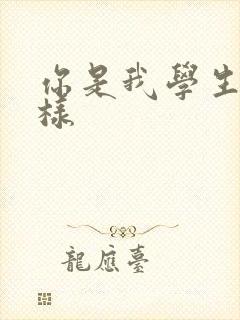 你是我學生
樣
龍應臺